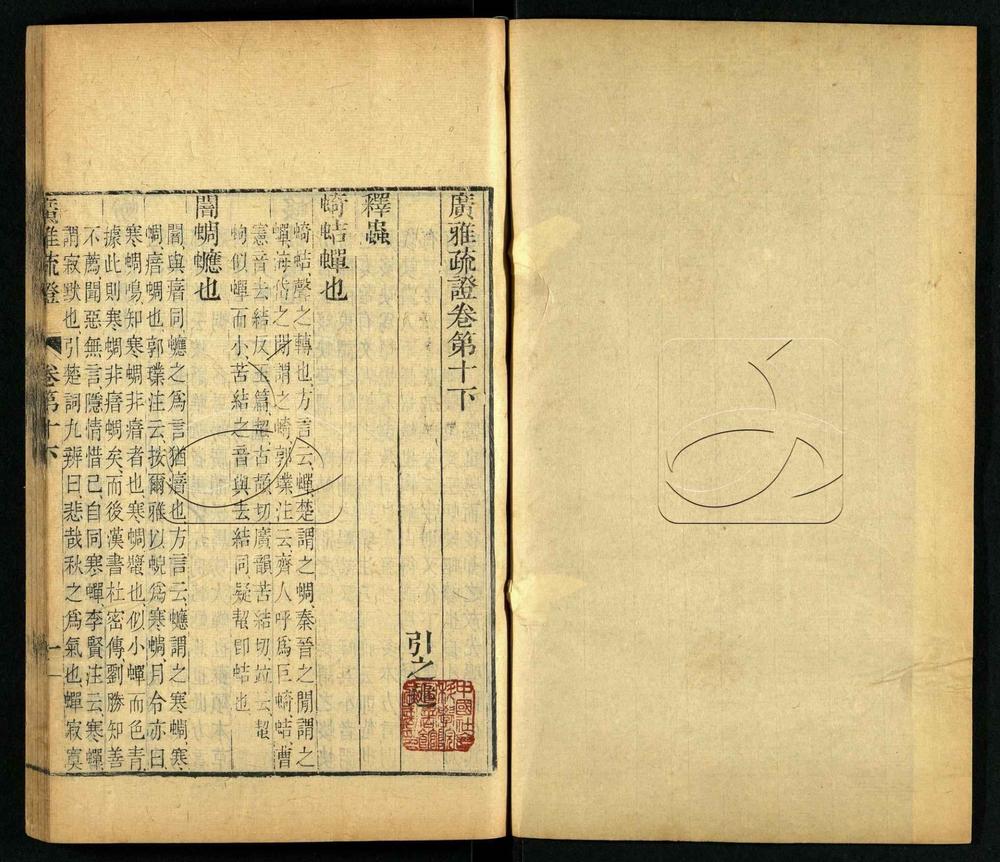 廣雅疏證卷第十下
引之述
中國社會科學院語言研究所
釋蟲
蛥蚗蟬也
蛥蚗聲之轉也方言云蟬楚謂之蜩秦晉之閒謂之
蟬海岱之閒謂之䗁郭璞注云齊人呼爲巨䗁蛣曹
憲音去結反玉篇䘁古頡切廣韻苦結切竝云䘁
蚼似蟬而小苦結之音與去結同疑䘁卽蛣也
闇蜩䗻也
闇與瘖同䗻之爲言猶瘖也方言云䗻謂之寒蜩寒
蜩瘖蜩也郭璞注云按爾雅以蜺爲寒蜩月令亦曰
寒蜩鳴知寒蜩非瘖者也寒蜩螿也似小蟬而色青
據此則寒蜩非瘖蜩矣而後漢書杜密傳劉勝知善
不薦聞惡無言隱情惜己自同寒蟬李賢注云寒蟬
謂寂默也引楚詞九辨曰悲哉秋之爲氣也蟬寂寞
廣雅疏證
卷第十下
一